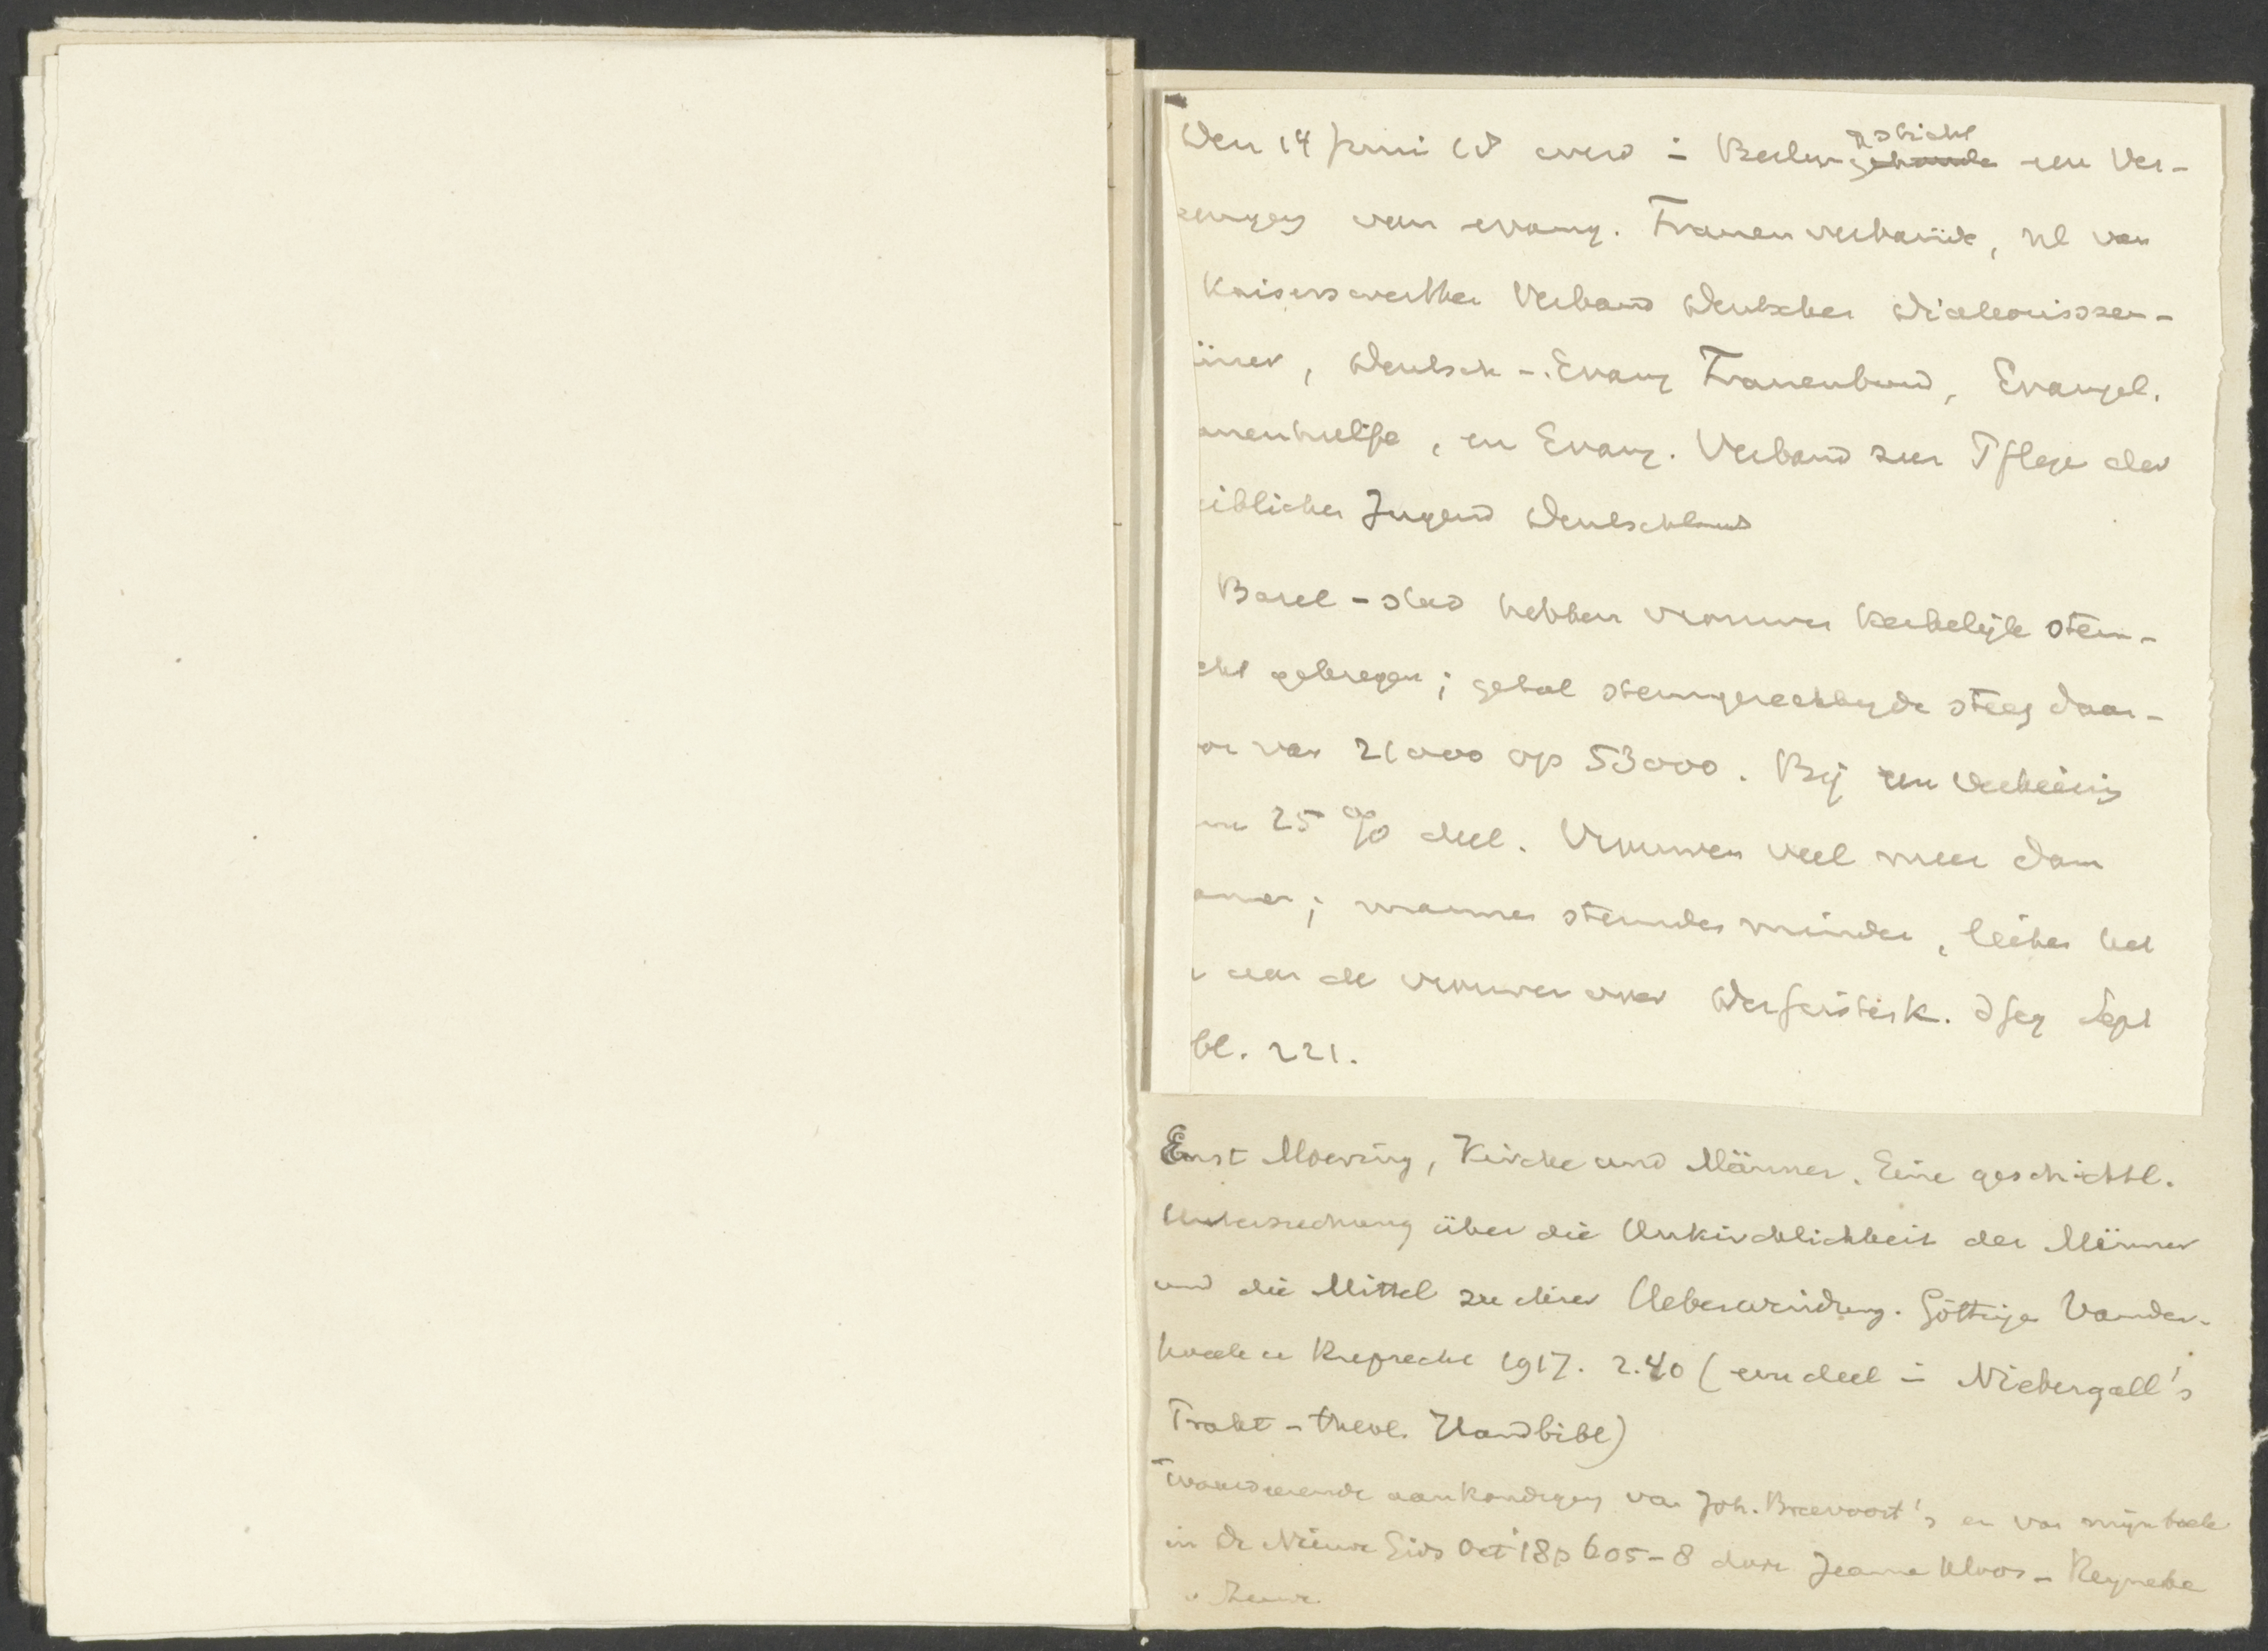 Den 14 Juni 18 werd in Berlijn gesticht een Ver-
eeniging van evang. Frauenverbände, nl van
Kaiserswerther Verband Deutscher Diakonissen-
äuser, Deutsch-Evang Frauenbund, Evangel.
auenhülfe, en Evang. Verband zur Pflege der
eiblichen Jugend Deutschlands
Basel-stad hebben vrouwen kerkelijk stem-
cht gekregen; getal stemgerechtigde steeg daar-
oor van 21000 op 53000. Bij een verkiezing
25% deel. Vrouwen veel meer dan
annen; mannen stemden minder, lieten het
aan de vrouwen over. Sept
bl. 221.
Ernst Moering, Kirche und Männer. Eine geschichtl.
Untersuchung über die Unkirchlichkeit der Männer
und die Mittel zu ihrer Ueberwindung. Göttingen Vanden-
hoeck u Ruprecht 1917. 2.40 (een deel in Niebergall's
Prakt-theol. Handbibl)
Waardeerende aankondiging van Joh. Breevoort's en van mijn boek
in De Nieuwe Gids Oct '18 p 605-8 door Jeanne Kloos-Reyneke